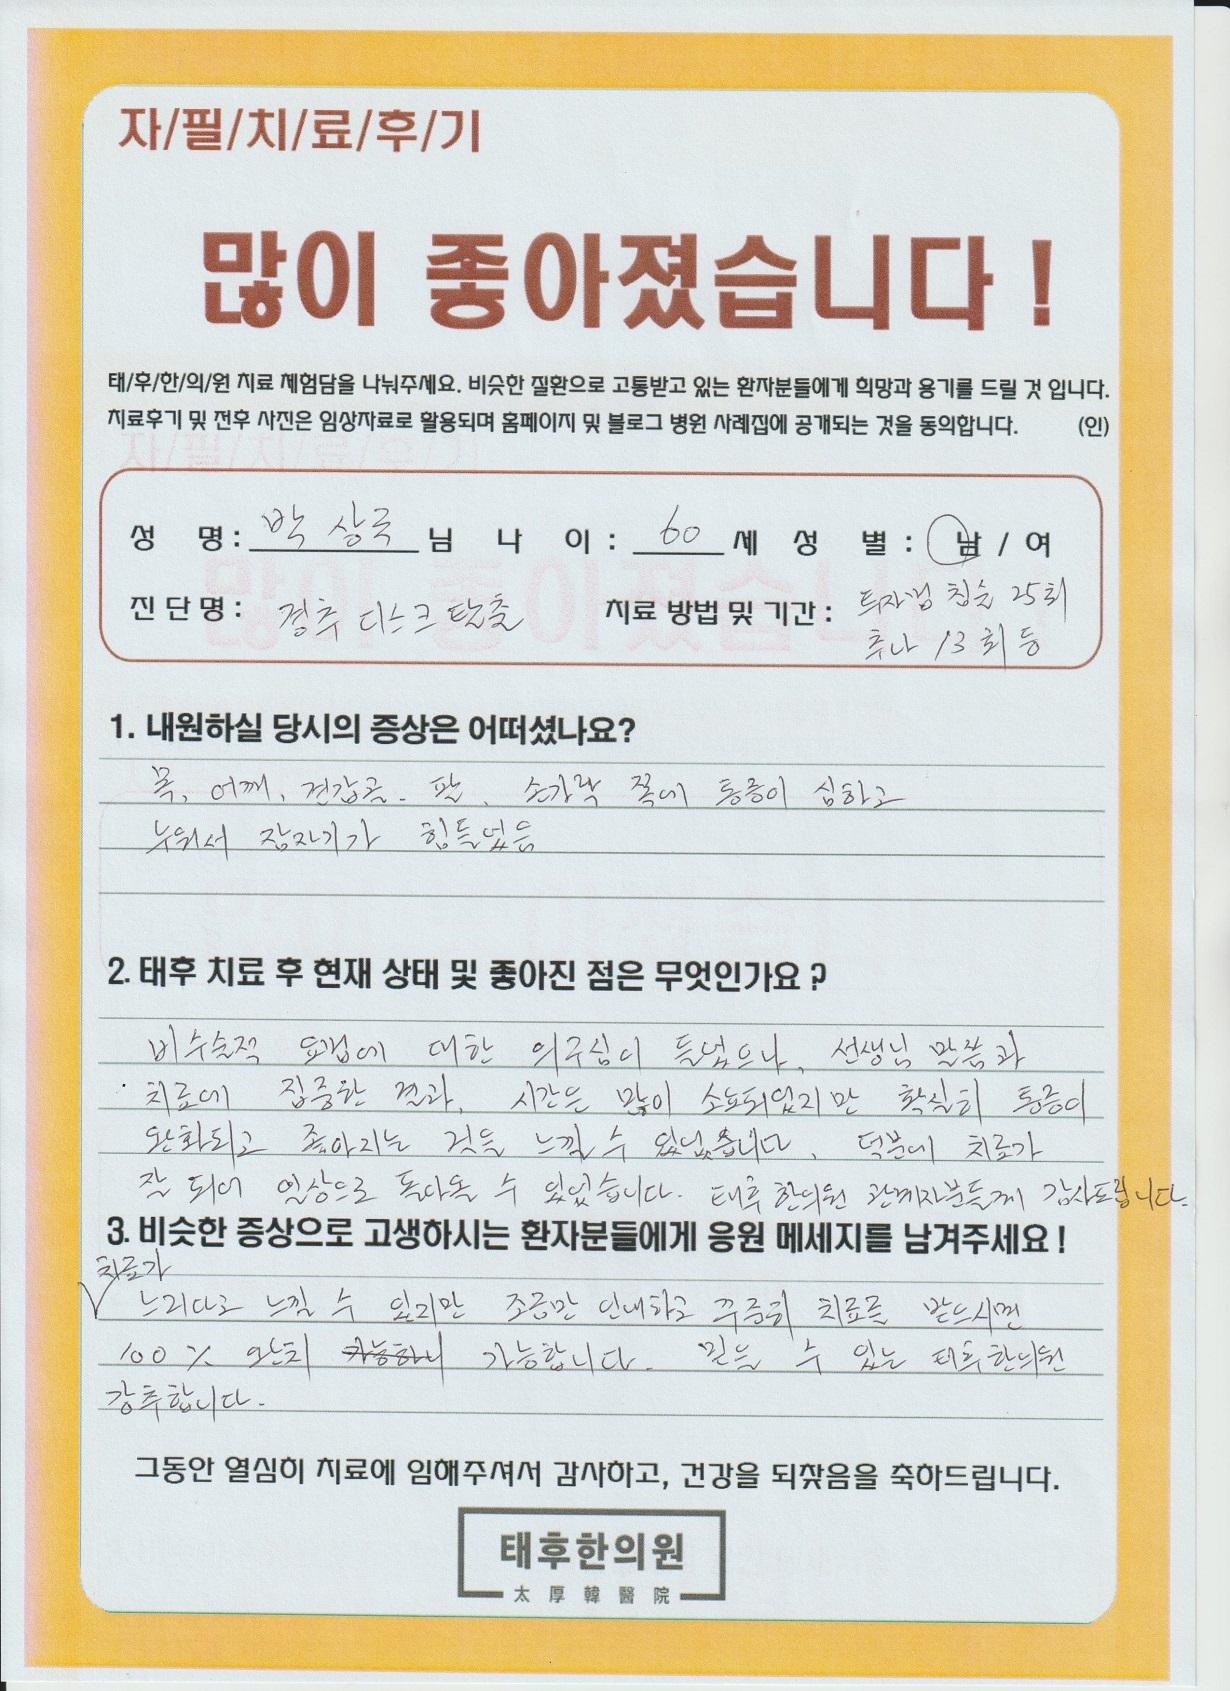 자/필/치/료/후/기
많이 좋아졌습니다 !
태/후/한/의/원 치료 체험담을 나눠주세요. 비슷한 질환으로 고통받고 있는 환자분들에게 희망과 용기를 드릴 것 입니다.
치료후기 및 전후 사진은 임상자료로 활용되며 홈페이지 및 블로그 병원 사례집에 공개되는 것을 동의합니다. (인)
성 명 : 박상국 님 나 이 : 60 세 성 별 : 남 / 여
진 단 명 : 경추 디스크 탈출 치료 방법 및 기간 : 침술 25회
추나 13회 등
1. 내원하실 당시의 증상은 어떠셨나요?
목, 어깨, 견갑골. 팔, 손가락 쪽에 통증이 심하고
누워서 잠자기가 힘들었음
2. 태후 치료 후 현재 상태 및 좋아진 점은 무엇인가요 ?
비수술적 요법에 대한 의구심이 들었으나, 선생님 말씀과
치료에 집중한 결과, 시간은 많이 소요되었지만 확실히 통증이
완화되고 좋아지는 것을 느낄 수 있었습니다, 덕분에 치료가
잘 되어 일상으로 돌아올 수 있었습니다. 태후한의원 관계자분들께 감사드립니다.
3. 비슷한 증상으로 고생하시는 환자분들에게 응원 메세지를 남겨주세요 !
치료가
느리다고 느낄 수 있지만 조금만 인내하고 꾸준히 치료를 받으시면
100% 완치 가능하니 가능합니다. 믿을 수 있는 태후한의원
강추합니다.
그동안 열심히 치료에 임해주셔서 감사하고, 건강을 되찾음을 축하드립니다.
태후한의원
太厚韓醫院